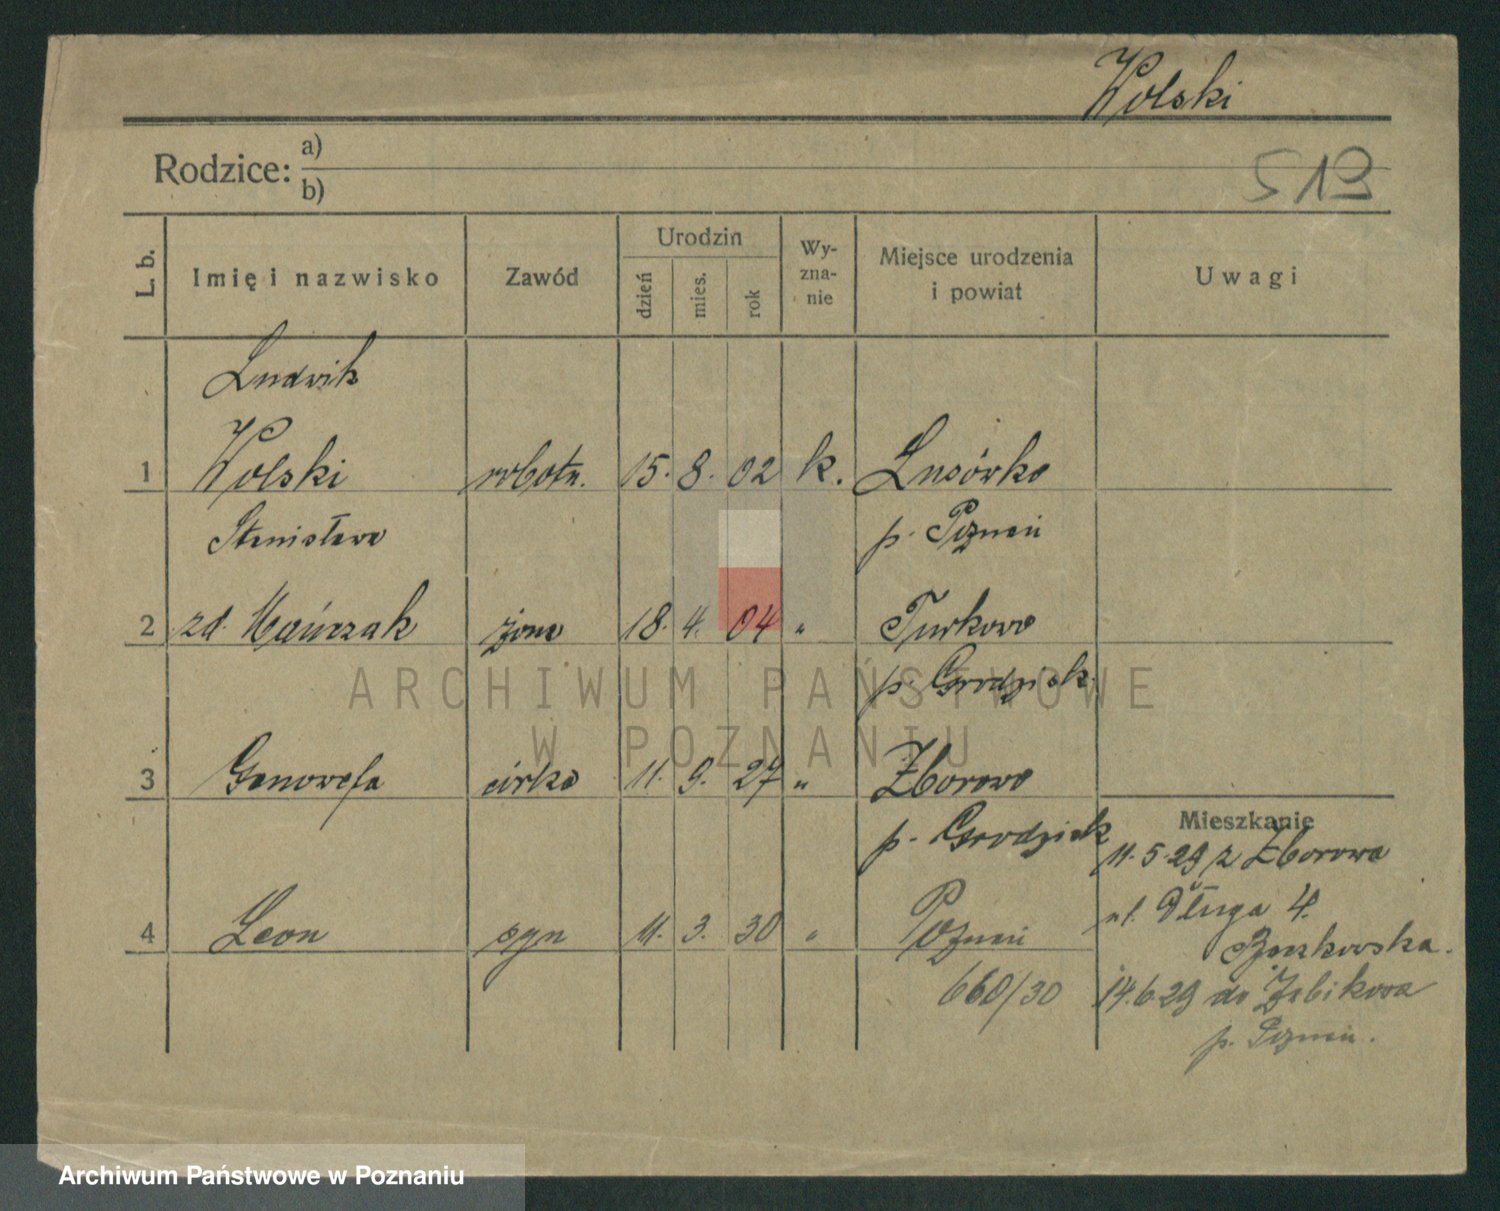 Wolski
Rodzice: a)
b)
519
L. b.
Imię i nazwisko
Zawód
Urodzin
dzień
mies.
rok
Wy-
zna-
nie
Miejsce urodzenia
i powiat
Uwagi
Ludwik
1 Wolski robotn. 15. 8. 02 k. Lusówko
Stanisława p. Poznań
2 zd. Mańczak żona 18. 4. 04 " Turkowo
p. Grodzisk
3 Genowefa córka 11. 9. 27 " Zborowo
p. Grodzisk
Mieszkanie
11.5.29 z Zborowa
ul. Długa 4.
4 Leon syn 11. 3. 30 " Poznań
660/30
14.6.29 do Żabikowa
p. Poznań.
ARCHIWUM PAŃSTWOWE
W POZNANIU
Archiwum Państwowe w Poznaniu